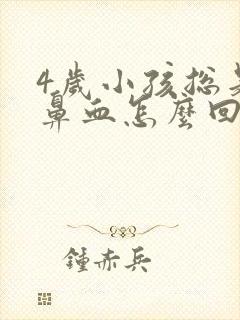 4歲小孩總是
鼻血怎麼回
鍾赤兵